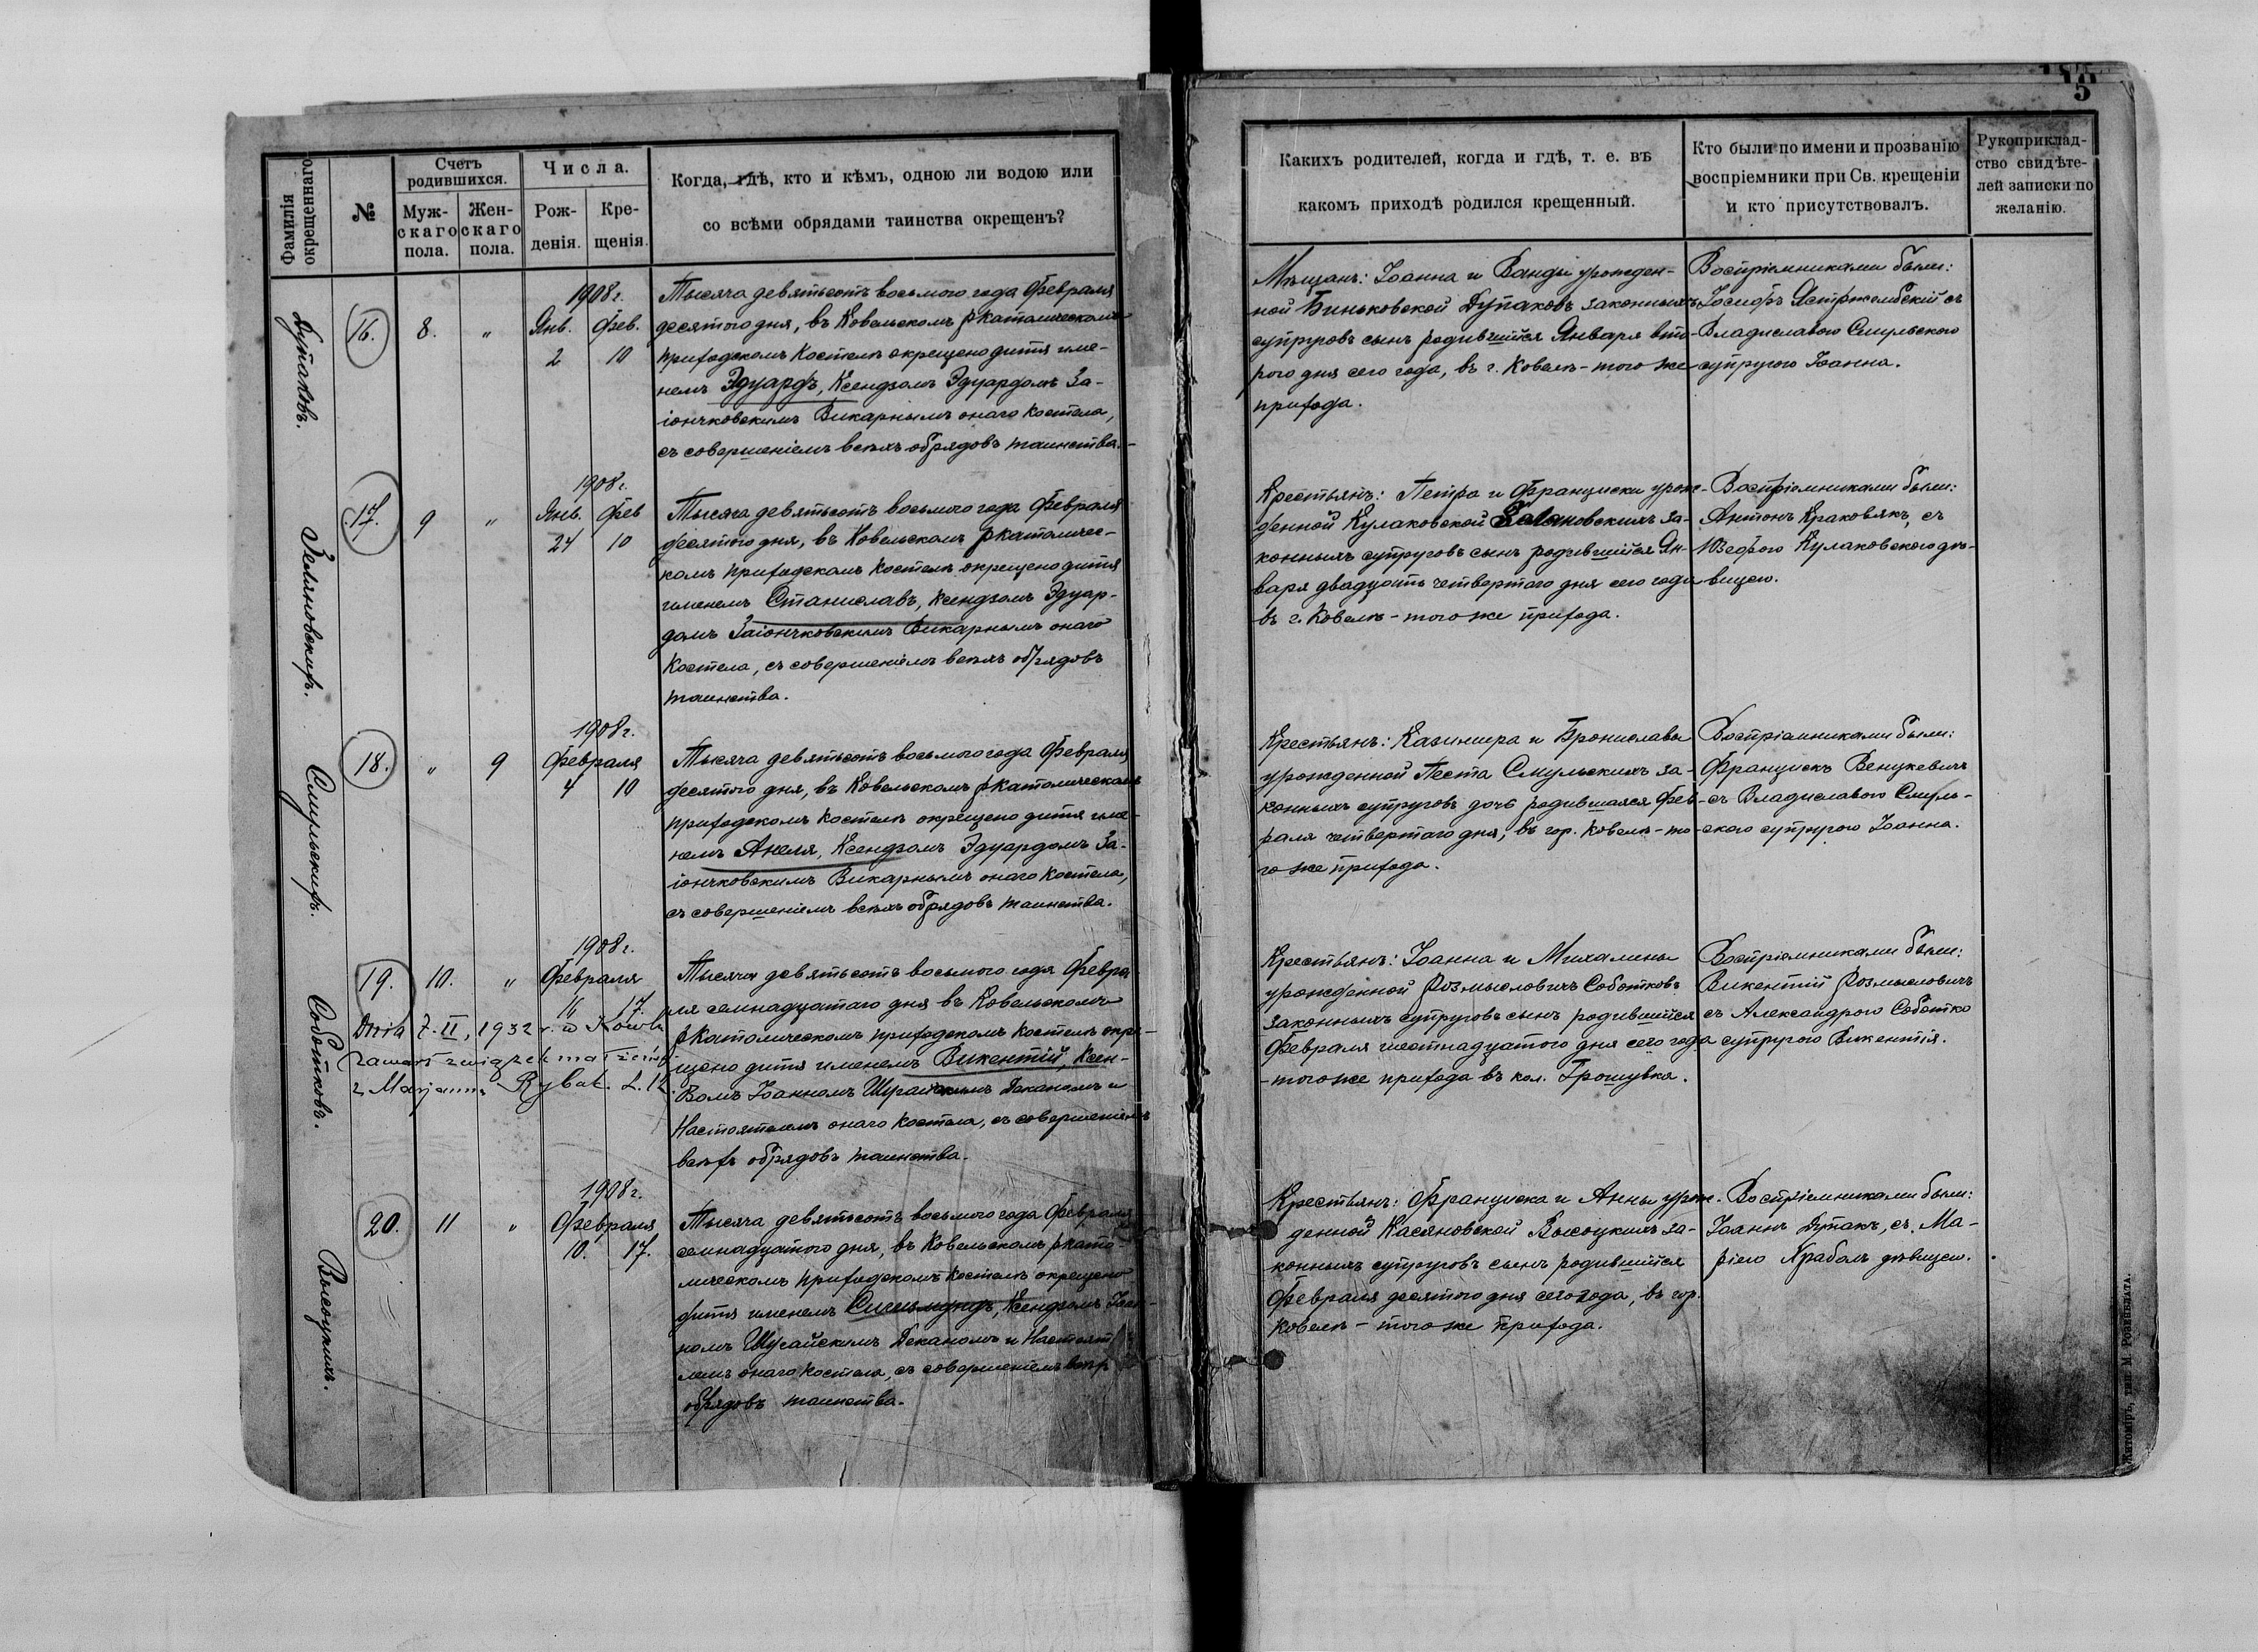 5
Фамилія
окрещеннаго
№
Счетъ
родившихся.
Муж-
скаго
пола.
Жен-
скаго
пола.
Числа.
Рож-
денія.
Кре-
щенія.
Когда, гдѣ, кто и кѣмъ, одною ли водою или
со всѣми обрядами таинства окрещенъ?
Какихъ родителей, когда и гдѣ, т. е. въ
какомъ приходѣ родился крещенный.
Кто были по имени и прозванію
воспріемники при Св. крещеніи
и кто присутствовалъ.
Рукоприклад-
ство свидѣте-
лей записки по
желанію.
Дутаковъ.
16.
8.
"
1908 г.
Янв. Фев.
2 10
Тысяча девятьсотъ восьмого года Февраля
десятого дня, въ Ковельскомъ р католическомъ
приходскомъ костелѣ окрещено дитя име-
немъ Эдуардъ, Ксендзомъ Эдуардомъ За-
іончковскимъ Викарнымъ онаго костела,
съ совершеніемъ всѣхъ обрядовъ таинства.-
Мѣщанъ: Іоанна и Ванды урожден-
ной Биньковской Дутаковъ законныхъ
супруговъ сынъ родившійся Января вто-
рого дня сего года, въ г. Ковелѣ - того же
прихода.
Воспріемниками были:
Іосифъ Ястржембскій съ
Владиславою Смульского
супругою Іоанна.
17.
9
"
1908 г.
Янв. Фев
24 10
Тысяча девятьсотъ восьмого года Февраля
десятого дня, въ Ковельскомъ р католичес-
комъ приходскомъ костелѣ окрещено дитя
именемъ Станиславъ, ксендзомъ Эдуар-
домъ Заіончковскимъ Викарнымъ онаго
Костела, съ совершеніемъ всѣхъ обрядовъ
таинства.
Крестьянъ: Петра и Франциски урож-
денной Кулаковской за-
конныхъ супруговъ сынъ родившійся Ян-
варя двадцать четвертаго дня сего года
въ г. Ковелѣ - того же прихода.
Воспріемниками были:
Антонъ Краковякъ, съ
Юзефою Кулаковского дѣ-
вицею.
Смульскихъ.
18.
"
9
1908 г.
Февраля
4 10
Тысяча девятьсотъ восьмого года Февраля
десятого дня, въ Ковельскомъ р католическомъ
приходскомъ костелѣ окрещено дитя име-
немъ Анеля, Ксендзомъ Эдуардомъ За-
іончковскимъ Викарнымъ онаго костела,
съ совершеніемъ всѣхъ обрядовъ таинства.
Крестьянъ: Казимира и Брониславы
урожденной Песта Смульскихъ за-
конныхъ супруговъ дочь родившаяся Фев-
раля четвертаго дня, въ гор. Ковелѣ - то-
го же прихода.
Воспріемниками были:
Францискъ Венцкевичъ
съ Владиславою Смуль-
ского супругою Іоанна.
Соботковъ.
19.
10.
"
1908 г.
Февраля
16 17.
Dnia 7. II, 1932 r. w Kowlu
zawarł związek małżeński
z Marjanną Rybak. L. 12
Тысяча девятьсотъ восьмого года Февра
ля семнадцатаго дня въ Ковельскомъ
р Католическомъ приходскомъ костелѣ окре-
щено дитя именемъ Викентій, Ксен-
дзомъ Іоанномъ Шугайскимъ Деканомъ и
Настоятелемъ онаго костела, съ совершеніемъ
всѣхъ обрядовъ таинства.
Крестьянъ: Іоанна и Михалины
урожденной Розмысловичъ Соботковъ
законныхъ супруговъ сынъ родившійся
Февраля шестнадцатого дня сего года
- того же прихода въ кол. Грошувка.
Воспріемниками были:
Викентій Розмысловичъ
съ Александрою Соботко
супругою Викентія.
Высоцкихъ.
20.
11
"
1908 г.
Февраля
10. 17.
Тысяча девятьсотъ восьмого года Февраля
семнадцатого дня, въ Ковельскомъ р като-
лическомъ приходскомъ костелѣ окрещено
дитя именемъ Сигизмундъ, Ксендзомъ Іоан-
номъ Шугайскимъ Деканомъ и Настояте-
лемъ онаго костела, съ совершеніемъ всѣхъ
обрядовъ таинства.
Крестьянъ: Франциска и Анны урож-
денной Касяновской Высоцкихъ за-
конныхъ супруговъ сынъ родившійся
Февраля десятого дня сего года, въ гор.
Ковелѣ - того же прихода.
Воспріемниками были:
Іоаннъ Дутакъ, съ Ма-
ріею Храболъ дѣвицею.
Житоміръ, тип. М. Розенблата.